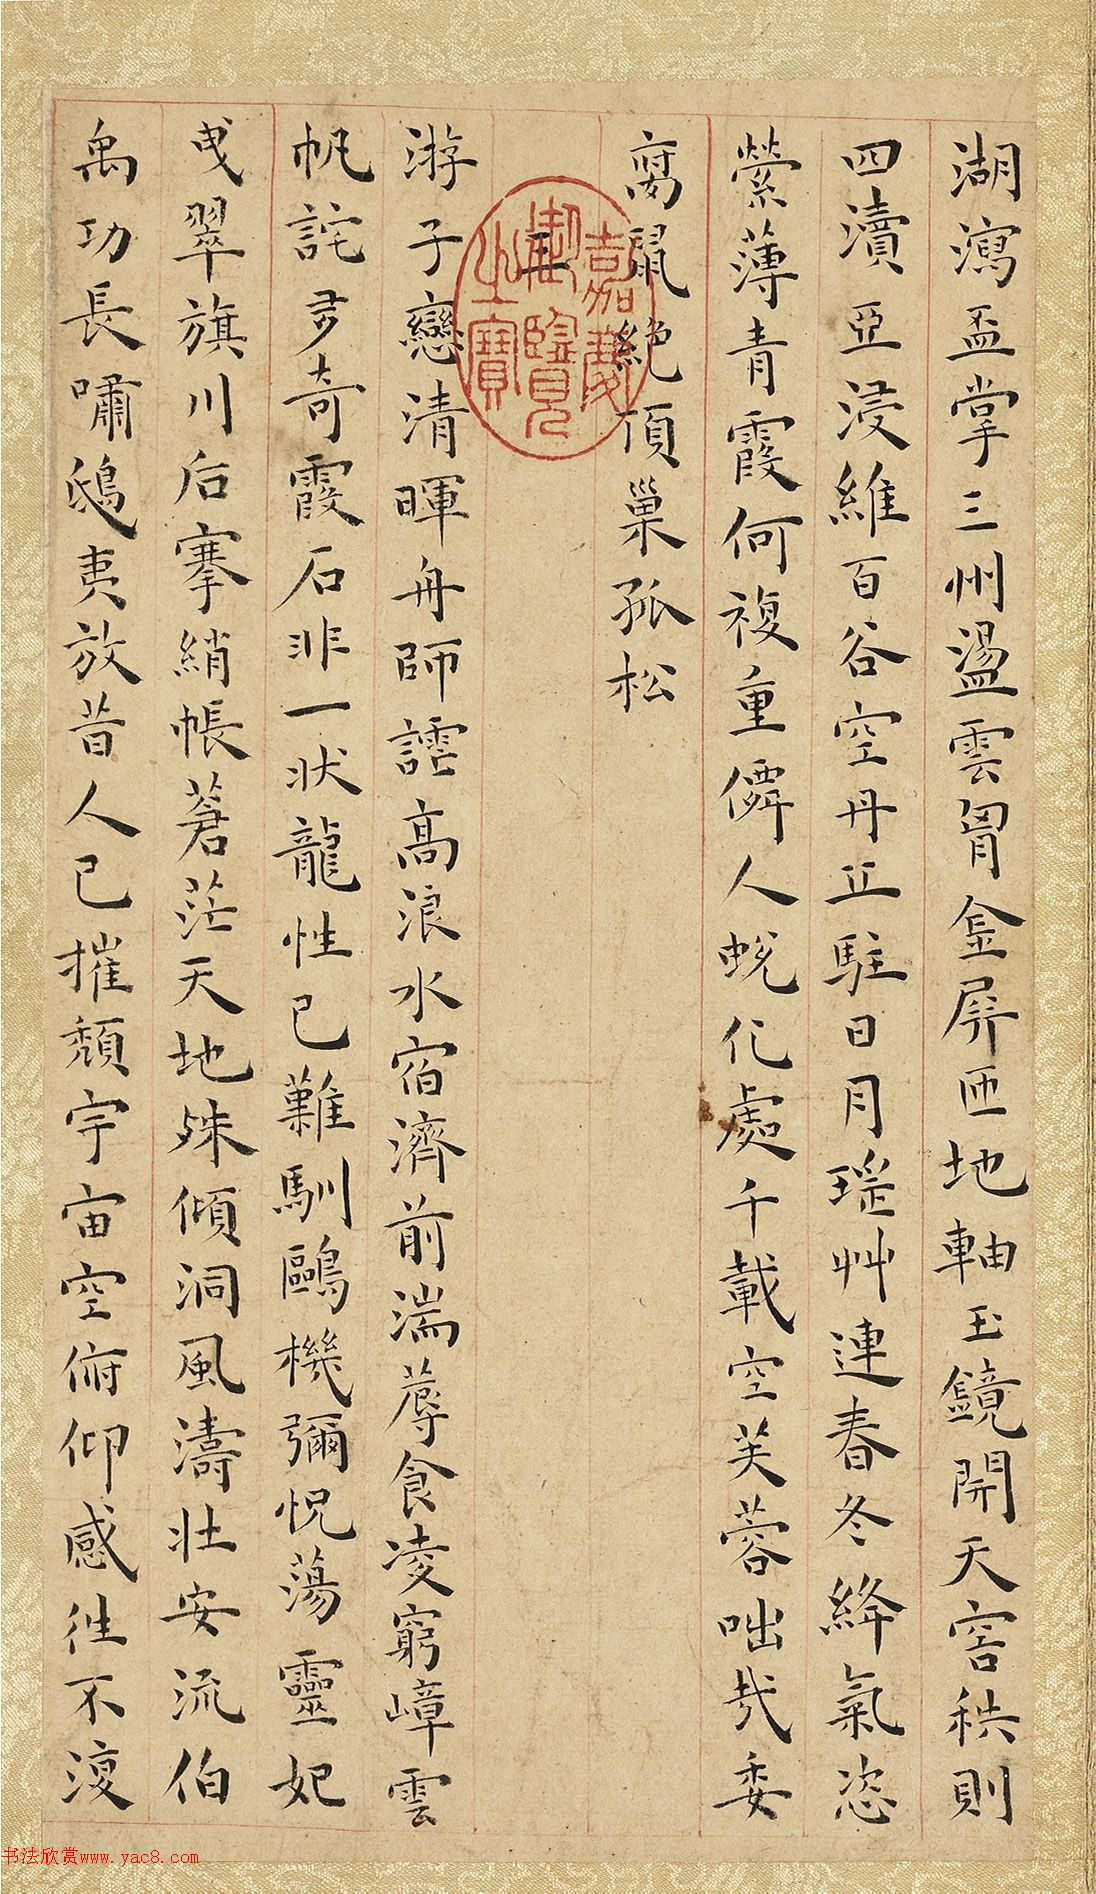 湖瀉盃掌三州盪雲胷金屏匝地軸玉鏡開天窖秩則
四瀆亞浸維百谷空丹丘駐日月瑤艸連春冬絳氣恣
縈薄青霞何複重僊人蛻化處千載空芙蓉咄哉委
腐鼠絕頂巢孤松
其二
游子戀清暉舟師謹高浪水宿濟前湍蓐食凌窮嶂雲
帆詫多奇霞石非一狀龍性已難馴鷗機彌怳蕩靈妃
曳翠旗川后搴綃帳蒼茫天地殊傾洞風濤壯安流伯
禹功長嘯鴟夷放昔人已摧頹宇宙空俯仰感往不復
嘉慶御覽之寶
书法欣赏www.yac8.com